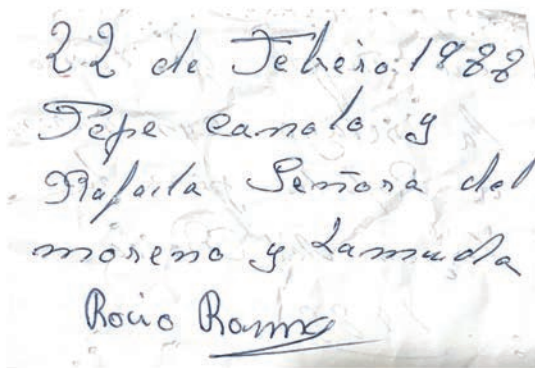 22 de Febrero 1988
Pepe Canalo y
Rafaela Señora del
moreno y Lamuda
Rocio